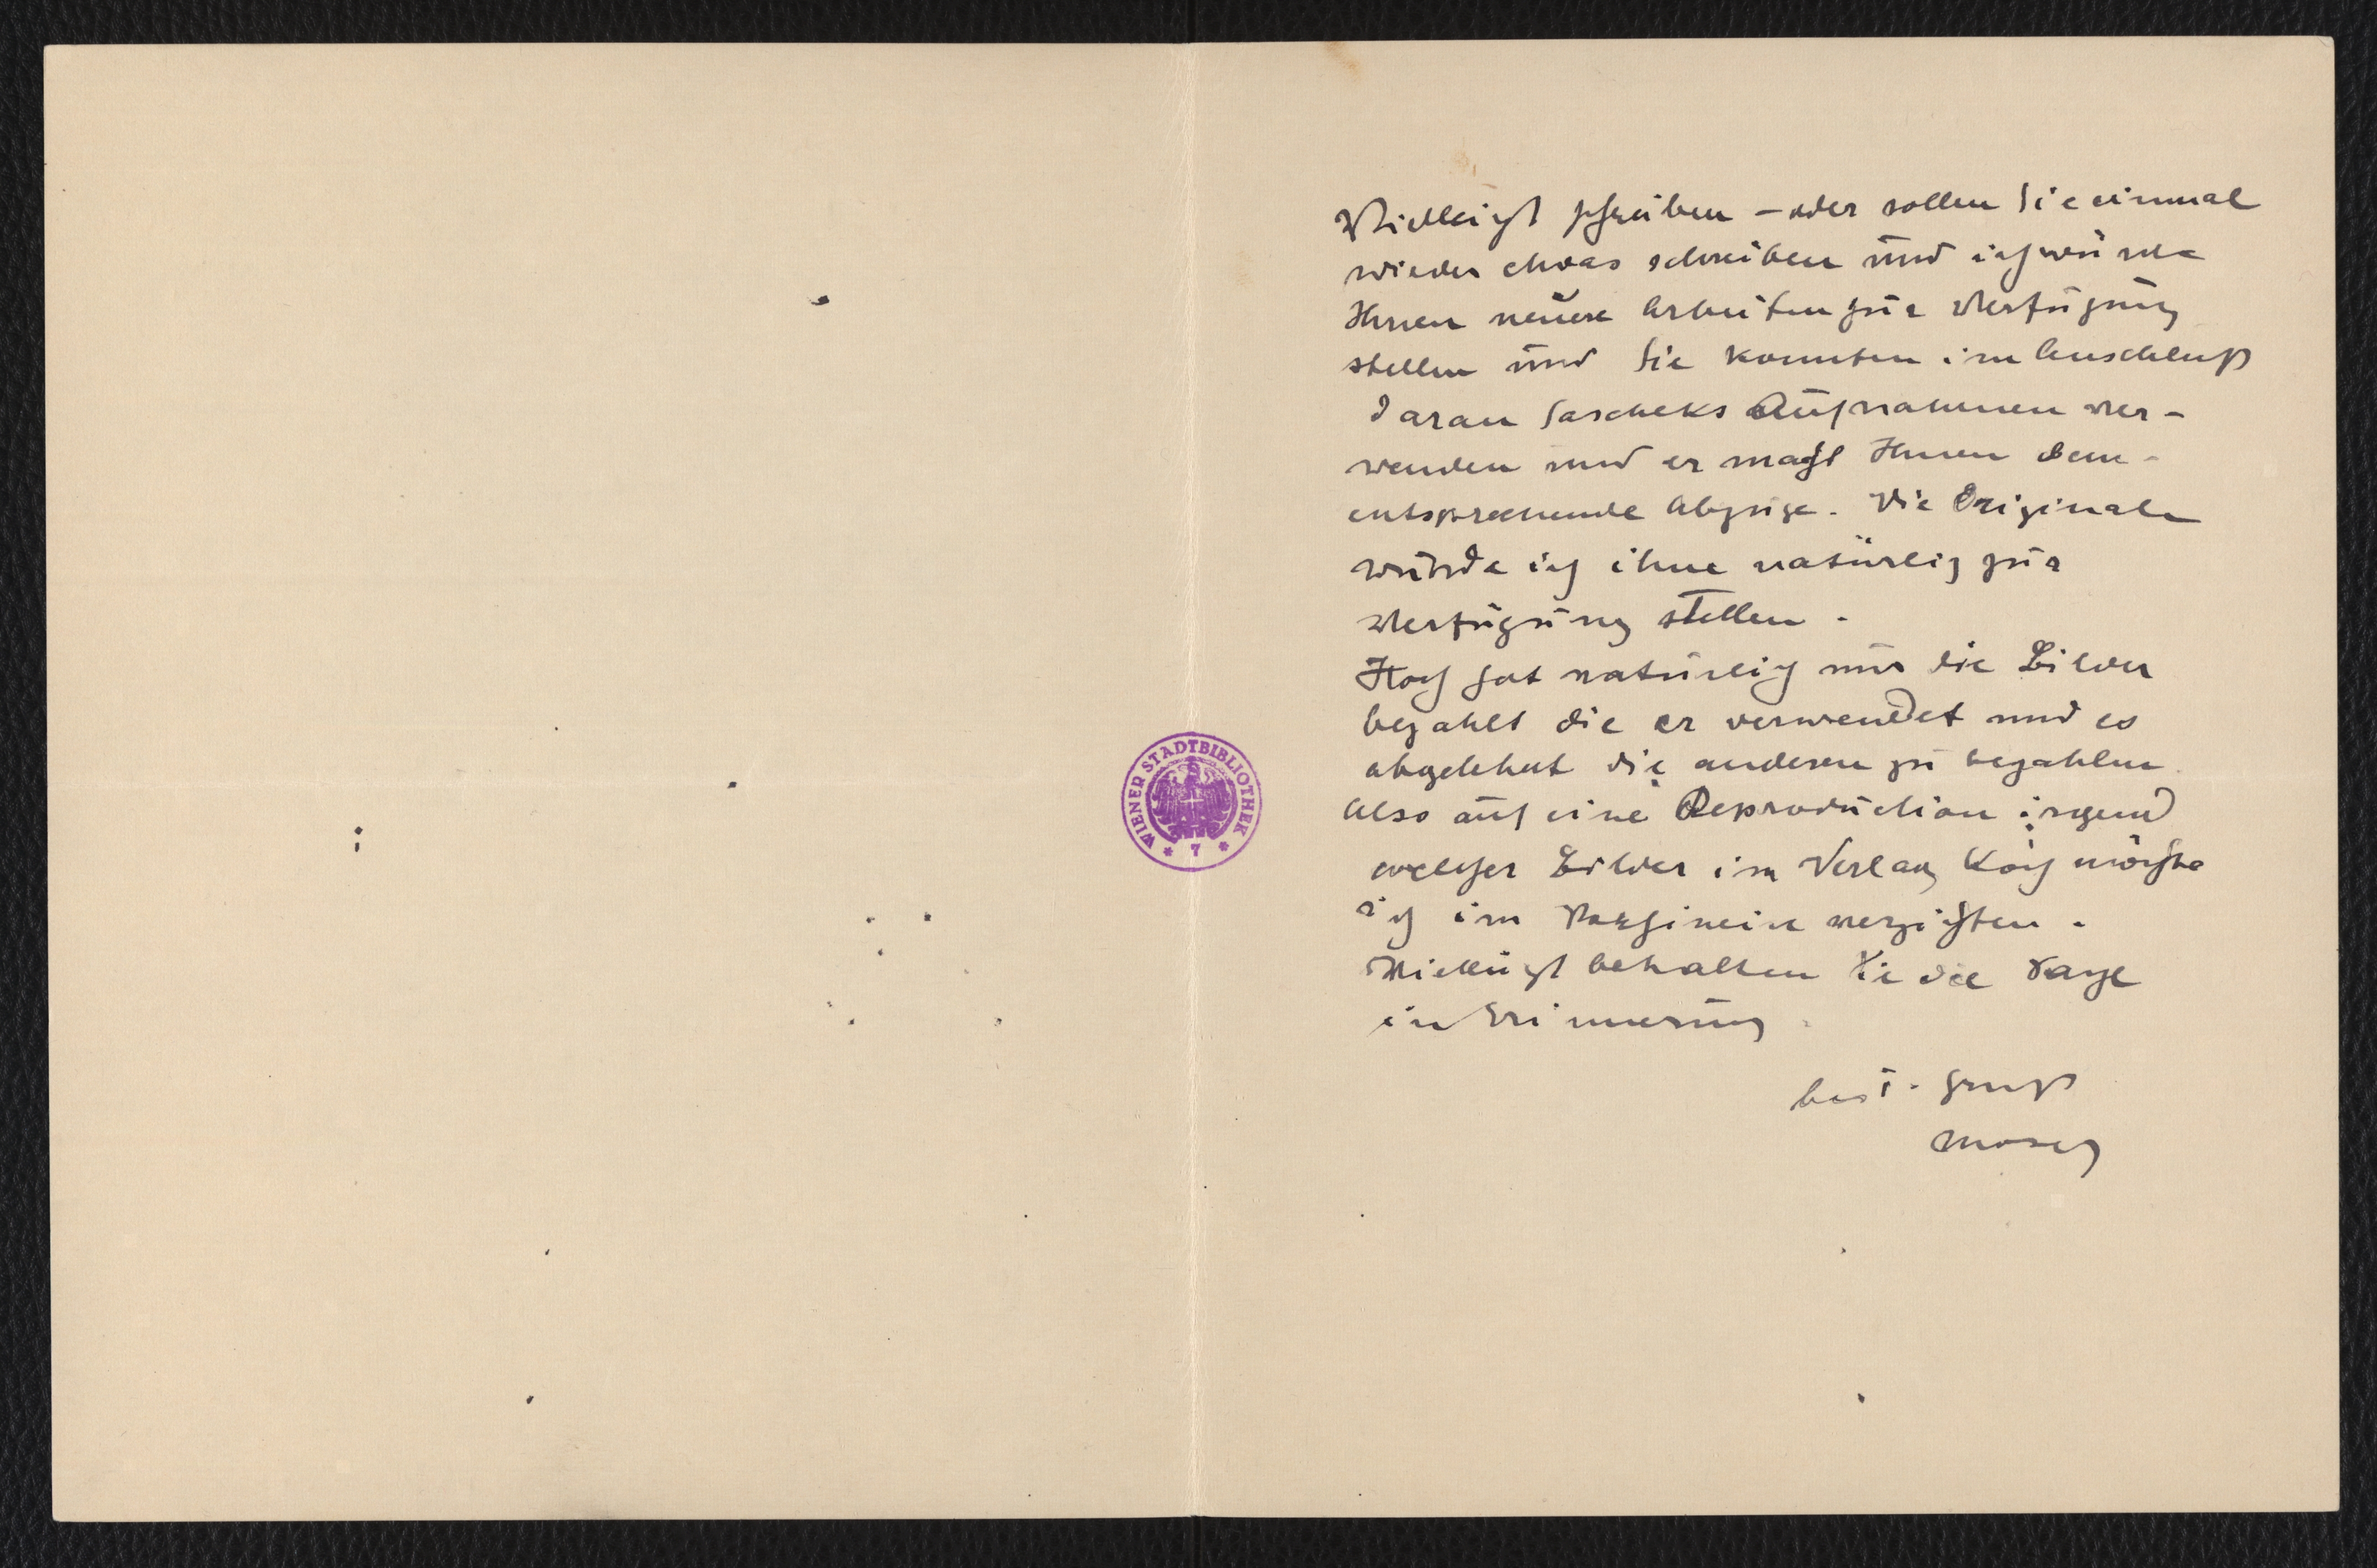 Vielleicht schreiben – oder sollen Sie einmal
wieder etwas schreiben und ich würde
Ihnen neuere Arbeiten zur Verfügung
stellen und Sie konnten im Anschluß
daran Sascheks Aufnahmen ver-
wenden und er macht Ihnen dem-
entsprechende Abzüge. Die Originale
würde ich ihne natürlich zur
Verfügung stellen.
Koch hat natürlich nur die Bilder
bezahlt die er verwendet und es
abgelehnt die anderen zu bezahlen.
Also auf eine Reproduction irgend
welcher Bilder im Verlag Koch möchte
ich im Vorhinein verzichten.
Vielleicht behalten Sie die Sache
in Erinnerung.
best. Gruß
WIENER STADTBIBLIOTHEK
* 7 *